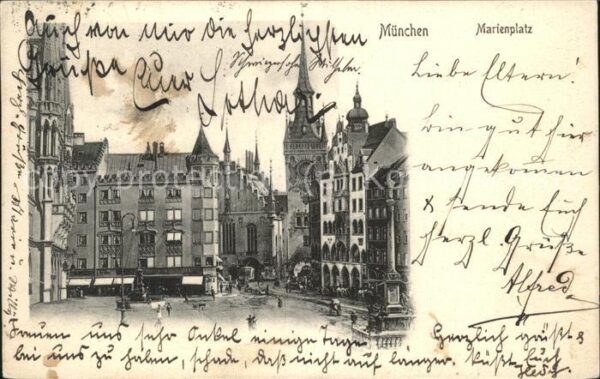 Auch von mir die herzlichsten
Grüße Euer
Lothar.
München
Marienplatz
Liebe Eltern!
Bin gut hier
angekommen
& sende Euch
herzl. Grüße
Alfred
Freuen uns sehr Onkel einige Tage
bei uns zu haben, schade, daß nicht auf länger.
Herzlich grüßt &
küßt Euch